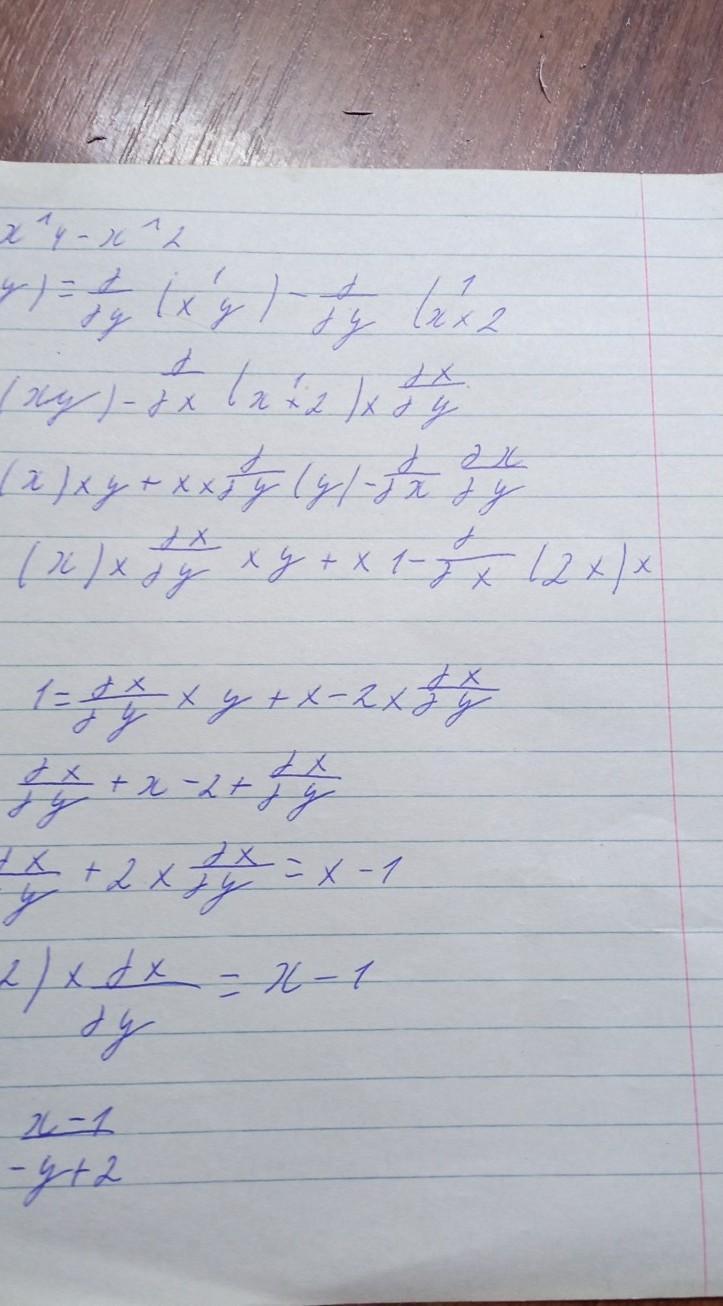 x^y-x^2
y)=d/dy (x^1y)-d/dy (x^1×2
(xy)-d/dx (x^1×2)×dx/dy
(x)×y+x×d/dy(y)-d/dx dx/dy
(x)×dx/dy×y+x1-d/dx(2x)×
1=dx/dy×y+x-2×dx/dy
dx/dy+x-2+dx/dy
dx/y+2×dx/dy=x-1
2)×dx/dy=x-1
x-1/-y+2